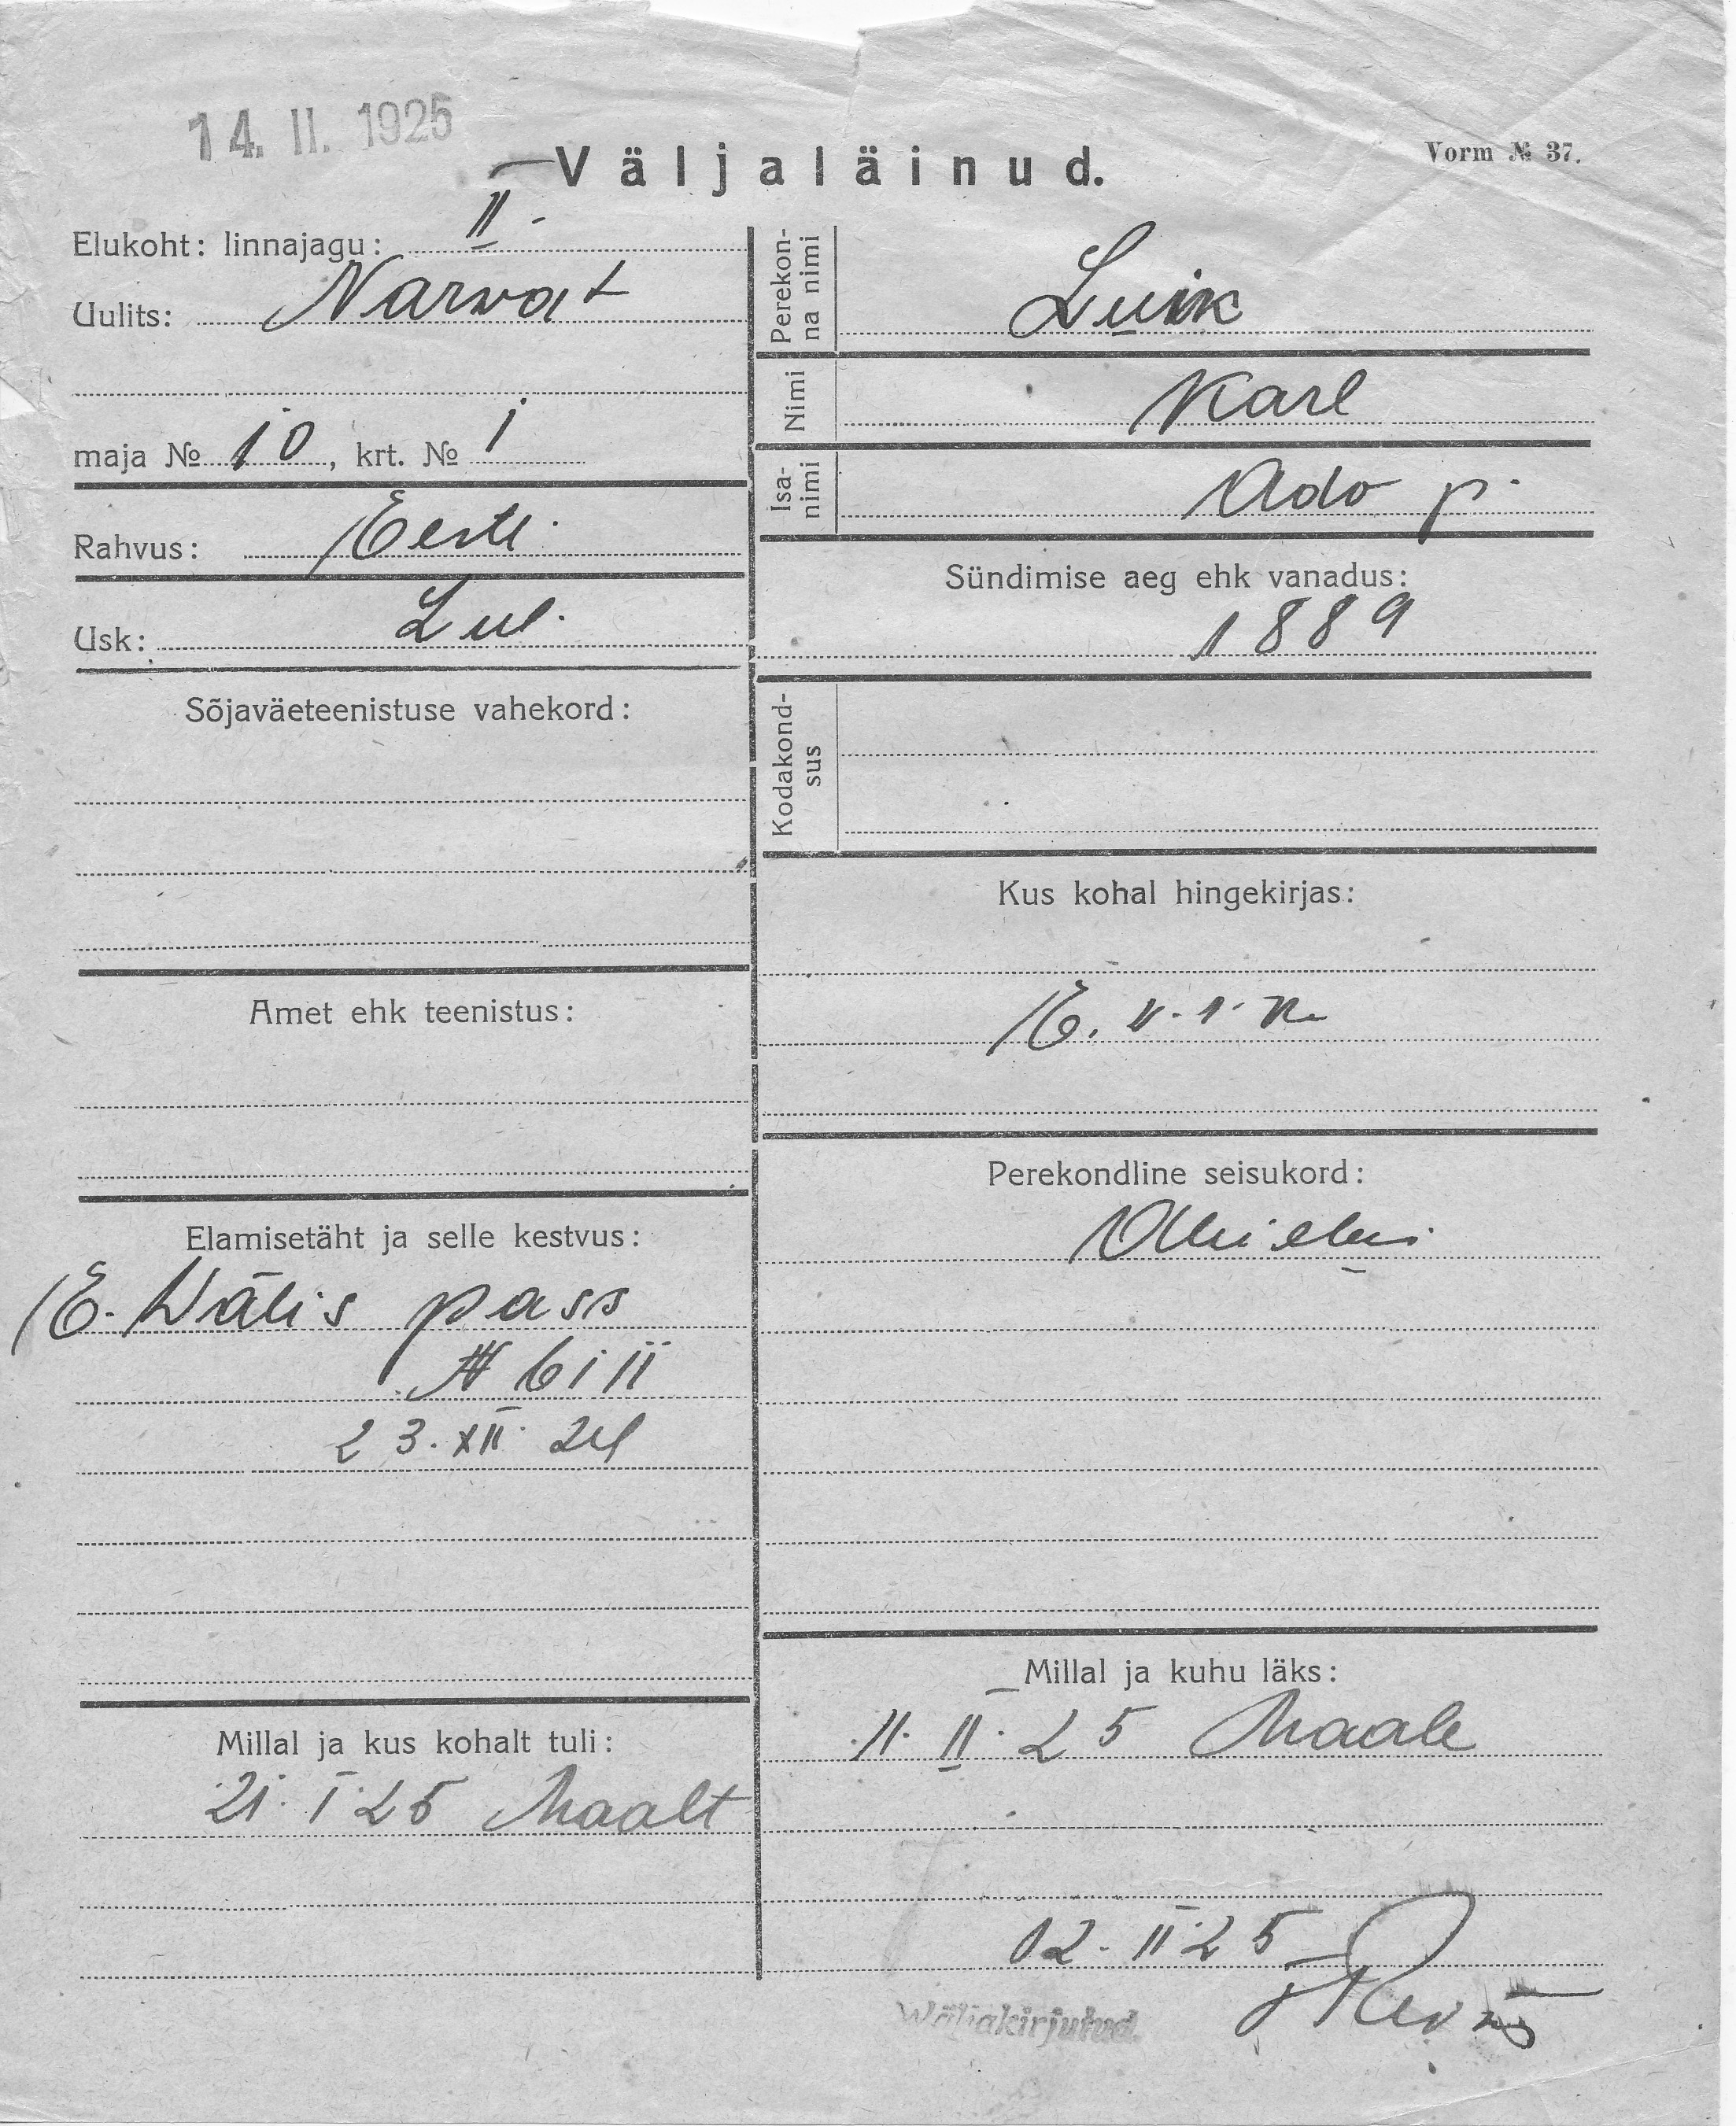 14. II. 1925
Väljaläinud.
Vorm № 37.
Elukoht: linnajagu: II
Uulits: Narva t
maja № 10, krt. № 1
Rahvus: Eesti
Usk: Lut.
Sõjaväeteenistuse vahekord:
Amet ehk teenistus:
Elamisetäht ja selle kestvus:
E. Wälis pass
№ 6111
23. XII. 24
Millal ja kus kohalt tuli:
21. I 25 Maalt
Perekonna nimi Luik
Nimi Karl
Isanimi Ado p.
Sündimise aeg ehk vanadus:
1889
Kodakondsus
Kus kohal hingekirjas:
Perekondline seisukord:
Millal ja kuhu läks:
11. II. 25 Maale
12. II 25
Wäljakirjutud.